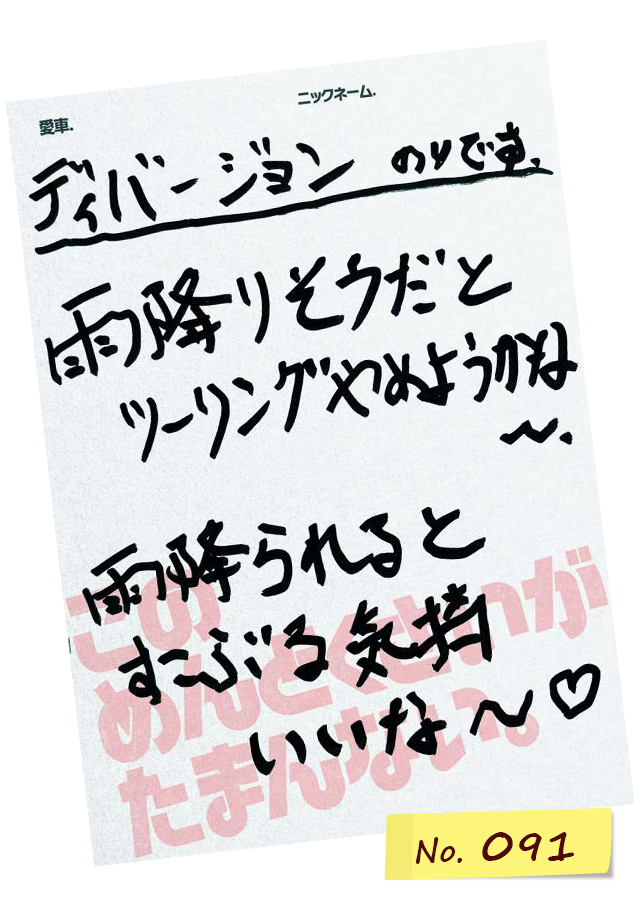 愛車.
ニックネーム.
ディバージョン のりです、
雨降りそうだと
ツーリングやめようかな
〜.
雨降られると
すこぶる気持
いいな〜♡
この、
めんどくさいが
たまんない。
No. 091